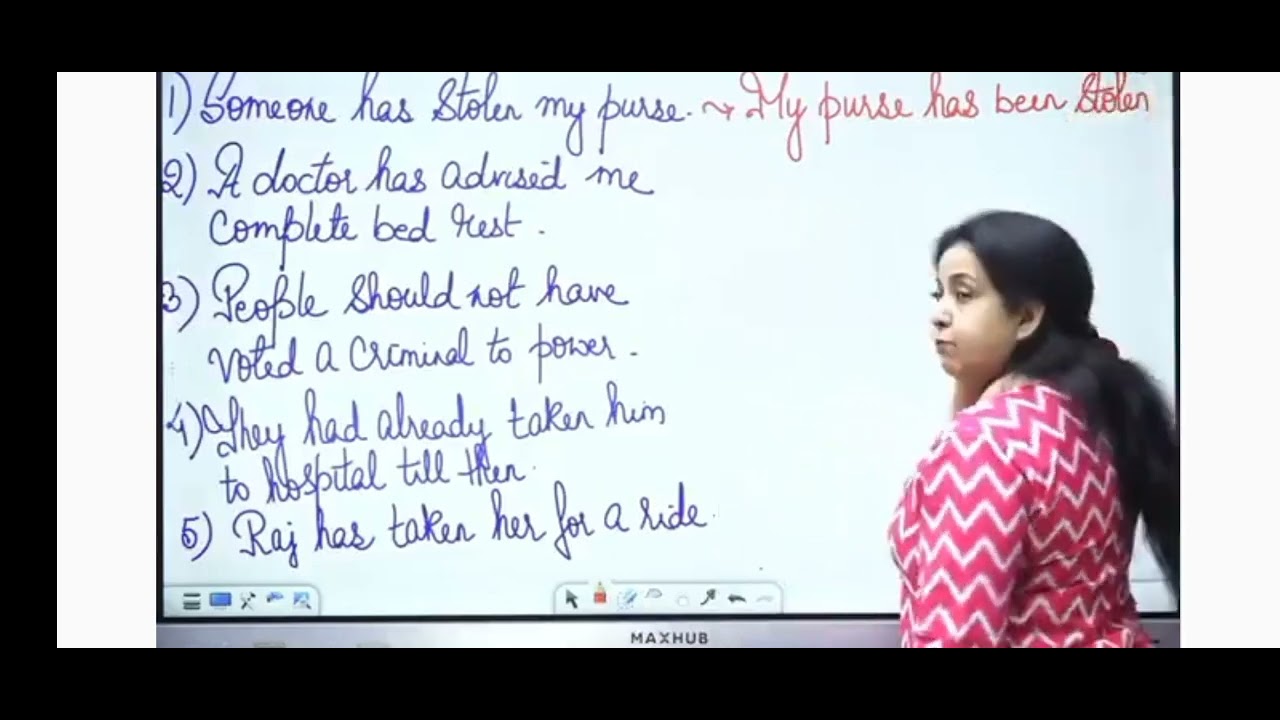 1) Someone has stolen my purse. ~→ My purse has been stolen
2) A doctor has advised me
complete bed rest.
3) People should not have
voted a criminal to power.
4) They had already taken him
to hospital till then.
5) Raj has taken her for a ride.
MAXHUB